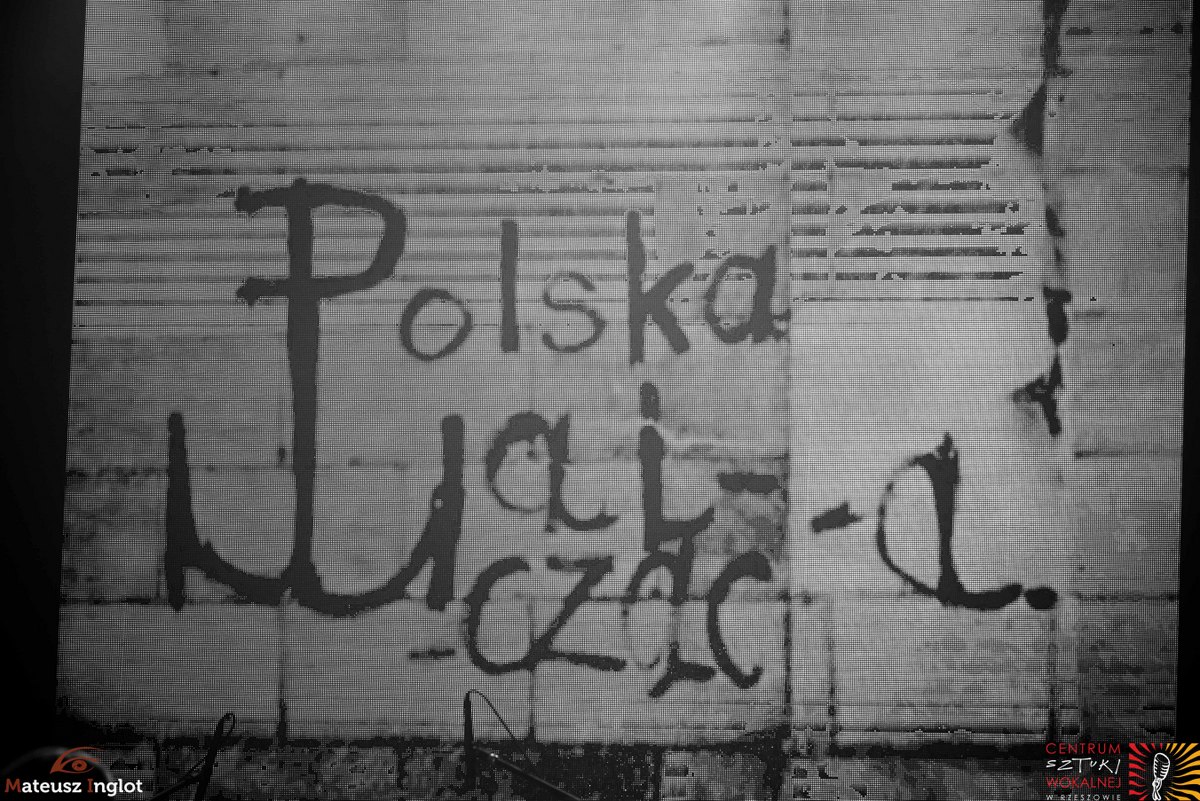 Polska
Wal-
-cząc
-a.
Mateusz Inglot
CENTRUM
SZTUKI
WOKALNEJ
W RZESZOWIE